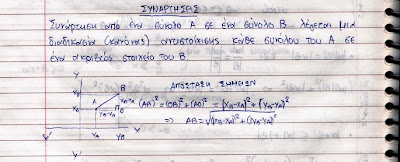 ΣΥΝΑΡΤΗΣΕΙΣ
Συνάρτηση από ένα σύνολο Α σε ένα σύνολο Β λέγεται μια
διαδικασία (κανόνας) αντιστοίχισης κάθε συνόλου του Α σε
ένα ακριβώς στοιχείο του Β.
ΑΠΟΣΤΑΣΗ ΣΗΜΕΙΩΝ
(AB)² = (OB)² + (AO)² = |XB-XA|² + |YB-YA|²
⇒ AB = √(XB-XA)² + (YB-YA)²